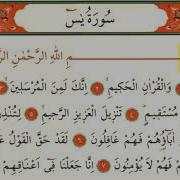 سُورَةُ يٰسٓ
ـمِ اللّٰهِ الرَّحْمٰنِ الرَّ
وَالْقُرْاٰنِ الْحَكِيمِۙ ﴿٢﴾ اِنَّكَ لَمِنَ الْمُرْسَلِينَۙ ﴿٣﴾
مُسْتَقِيمٍۜ ﴿٤﴾ تَنْزِيلَ الْعَزِيزِ الرَّحِيمِۙ ﴿٥﴾ لِتُنْذِ
اٰبَٓاؤُهُمْ فَهُمْ غَافِلُونَ ﴿٦﴾ لَقَدْ حَقَّ الْقَوْلُ عَ
فَهُمْ لَا يُؤْمِنُونَ ﴿٧﴾ اِنَّا جَعَلْنَا فِٓي اَعْنَاقِهِمْ